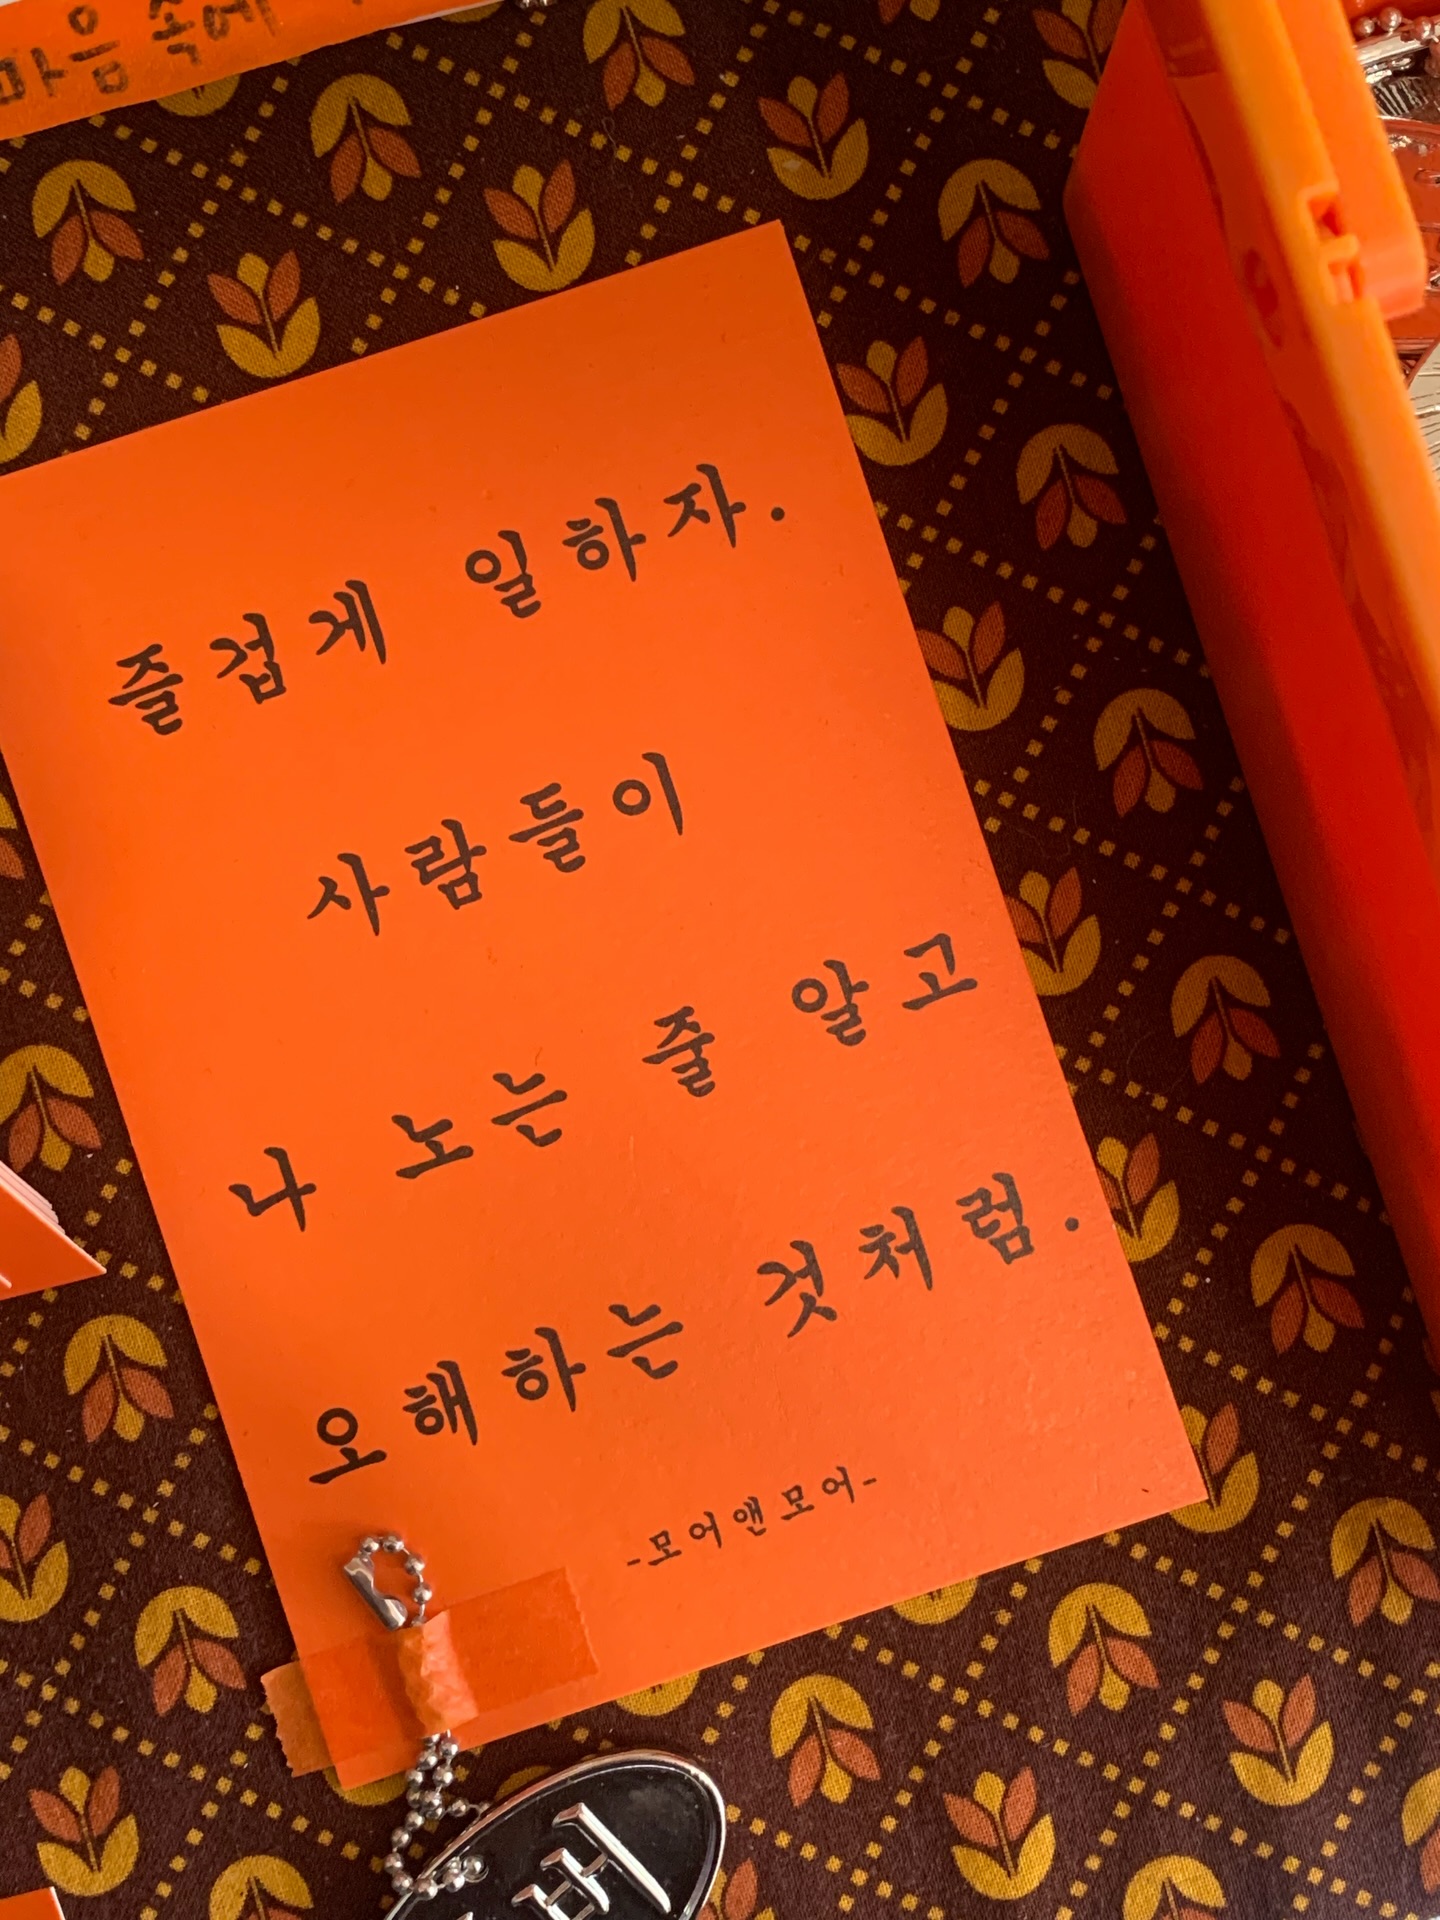 마음 속에
즐겁게 일하자.
사람들이
나 노는 줄 알고
오해하는 것처럼.
-모어앤모어-